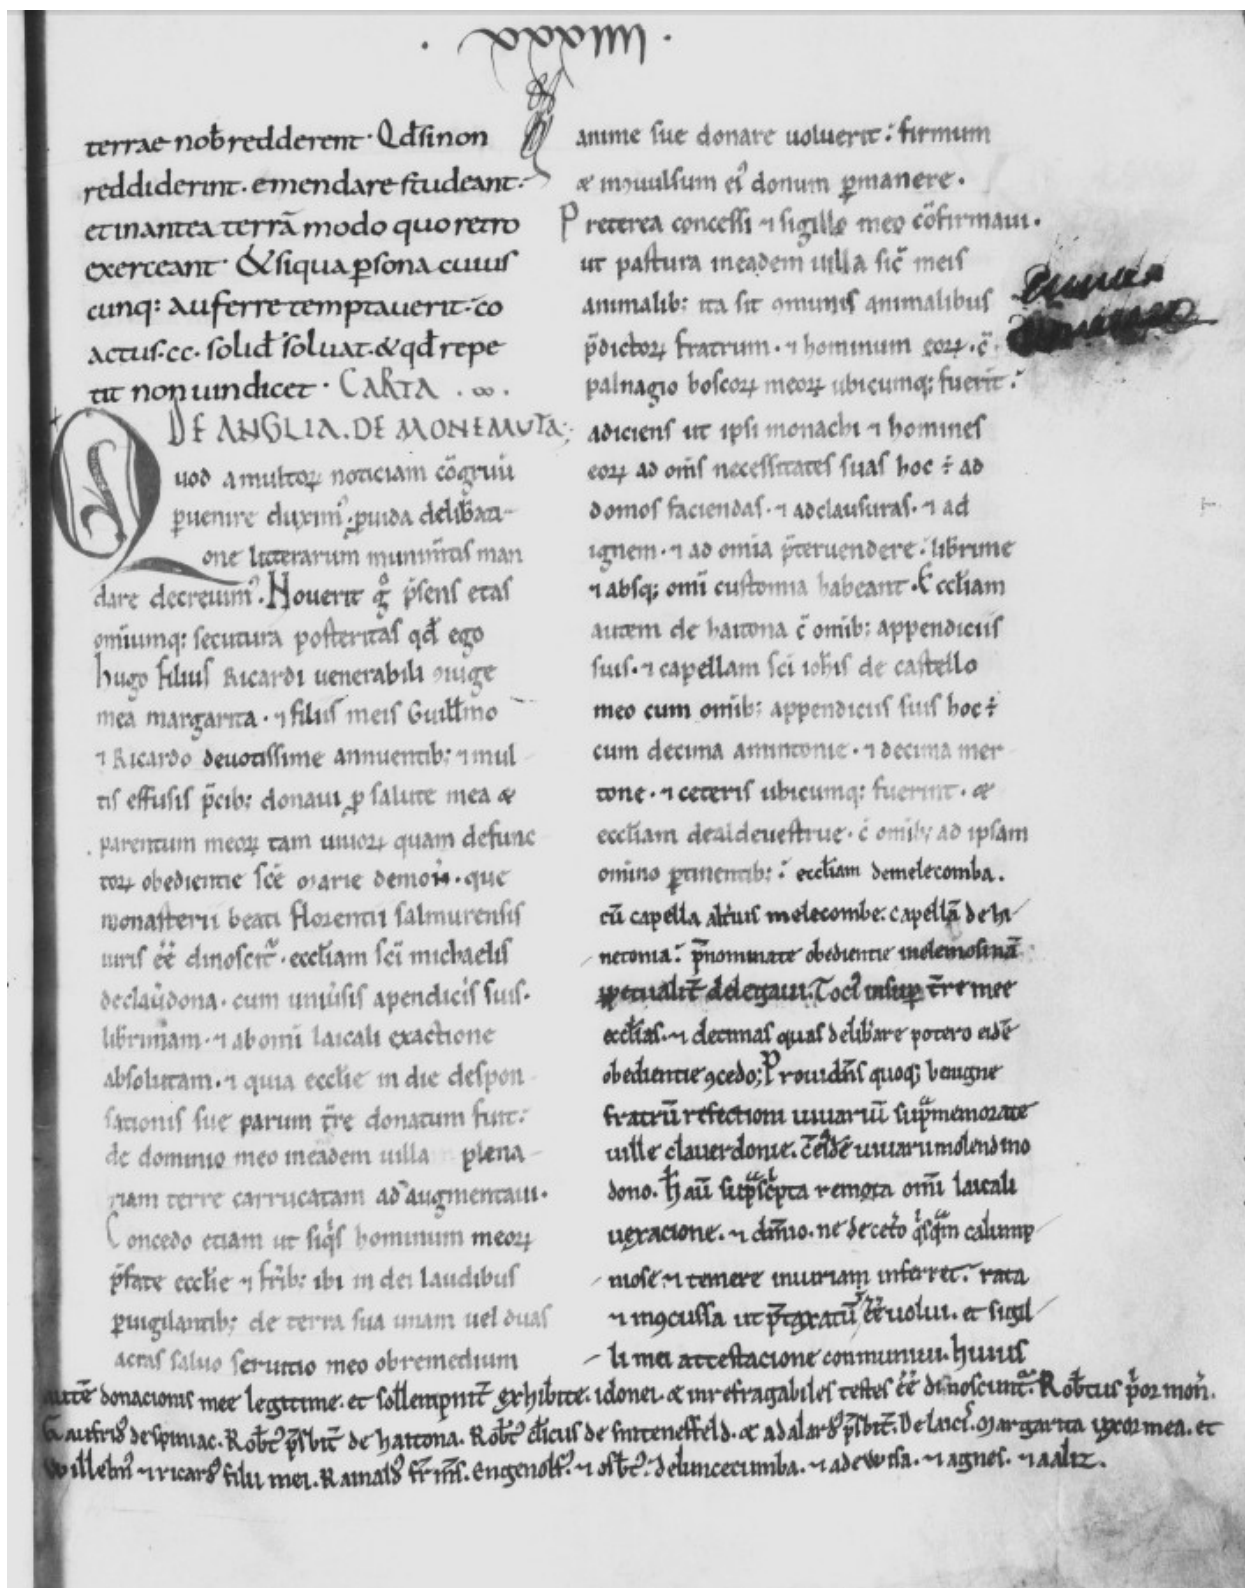 terrae nob̄ redderent · Qd̄ si non
reddiderint · emendare studeant ·
et in antea terrā modo quo retro
exerceant · & si qua p̱sona cuius
cunq; auferre temptauerit · co
actus · cc · solid̄ soluat · & qd̄ repe
tit non uindicet · CARTA . ∞ .
DE ANGLIA . DE MONEMUTA ;
Quod a multoꝝ noticiam cōgruū
ꝑuenire duximꝰ · ꝓuida delib̄ati-
one litterarum munim̄tis man
dare decreuimꝰ · Nouerit gͦ p̄sens etas
omniumq; secutura posteritas qd̄ ego
hugo filius Ricardi uenerabili ꝯiuge
mea margarita · ⁊ filiis meis Guillmo
⁊ Ricardo deuotissime annuentib; ⁊ mul
tis effusis p̄cib; donaui ꝓ salute mea &
parentum meoꝝ tam uiuoꝝ quam defunc
toꝝ obedientie scē marie de mon̄ · que
monasterii beati florentii salmurensis
iuris eē dinoscit᷑ · eccl̄iam sci michaelis
de claudona · cum uniūsis apendiciis suis ·
liberimam · ⁊ ab omi laicali exactione
absolutam · ⁊ quia eccl̄ie in die despon
sationis sue parum t̄re donatum fuit :
de dominio meo in eadem uilla plena
riam terre carrucatam ad augmentaui ·
Concedo etiam ut siqⁱs hominum meoꝝ
p̄fate eccl̄ie ⁊ frīb; ibi in dei laudibus
ꝑuigilantib; de terra sua unam uel duas
acras saluo seruitio meo ob remedium
anime sue donare uoluerit : firmum
& inꝯuulsum eiꝰ donum ꝑmanere ·
Preterea concessi ⁊ sigillo meo cōfirmaui ·
ut pastura in eadem uilla sic̄ meis
animalib; ita sit ꝯmunis animalibus
p̄dictoꝝ fratrum · ⁊ hominum eoꝝ · c̄
palnagio boscoꝝ meoꝝ ubicumq; fuerit :
adiciens ut ipsi monachi ⁊ homines
eoꝝ ad om̄s necessitates suas hoc ÷ ad
domos faciendas · ⁊ ad clausuras · ⁊ ad
ignem · ⁊ ad omia p̄ter uendere : lib̄rime
⁊ absq; omi custoinia habeant · Eccl̄iam
autem de hattona c̄ omib; appendiciis
suis · ⁊ capellam sci ioh̄is de castello
meo cum omib; appendiciis suis hoc ÷
cum decima amintonie · ⁊ decima mer
tone · ⁊ ceteris ubicumq; fuerint · &
eccl̄iam de aldeuestrue · c̄ omib; ad ipsam
omino ꝑtinentib; : eccl̄iam de melecomba .
cū capella alt̄ius melecombe : capellā de hi
netonia : p̄nominate obedientie in elemosinā
ꝑpetualit̄ delegaui . Tociꝰ insuꝑ t̄re mee
eccl̄ias · ⁊ decimas quas delib̄are potero eidē
obedientie ꝯcedo ; Prouidēs quoq; benigne
fratrū refectioni uiuariū sup̄memorate
uille clauerdonie . c̄ eidē uiuarii molendino
dono . h̄ aū sup̄scⁱpta remota omī laicali
uexacione . ⁊ dm̄io . ne de cet̄o qⁱsqᵃm calump
niose ⁊ temere iniuriam inferret : rata
⁊ inꝯcussa ut p̄taxatū ÷ eē uolui . et sigil
li mei attestacione conmuniui . huius
autē donacionis mee legitime . et sollempnit̄ exhibite . idonei . & inrefragabiles testes eē dinoscunt᷑ . Rob̄tus p̄or mon̄ .
Gaufridꝰ de spiniac . Rob̄tꝰ p̄sbit̄ de hattona . Rob̄tꝰ cl̄icus de sniteneffeld . & adalardꝰ p̄sbit̄ . De laicⁱs . Margarita uxor mea . et
Willelmꝰ ⁊ ricardꝰ filii mei . Rainaldꝰ fr̄ m̄s . Engenolfꝰ . ⁊ osb̄tꝰ : de luncecumba . ⁊ adewisa . ⁊ agnes . ⁊ aaliz .